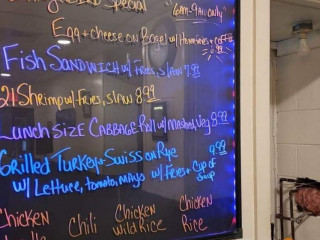 Special "6am-9am only"
Egg + cheese on Bagel w/ Homefries + coffee
Fish Sandwich w/ Fries, slaw 7.99
21 Shrimp w/ Fries, slaw 8.99
Lunch Size Cabbage Roll w/ mashed, veg 8.99
Grilled Turkey + Swiss on Rye 9.99
w/ Lettuce, tomato, mayo w/ Fries + Cup of Soup
Chicken Chili Chicken Chicken
Wild Rice Rice